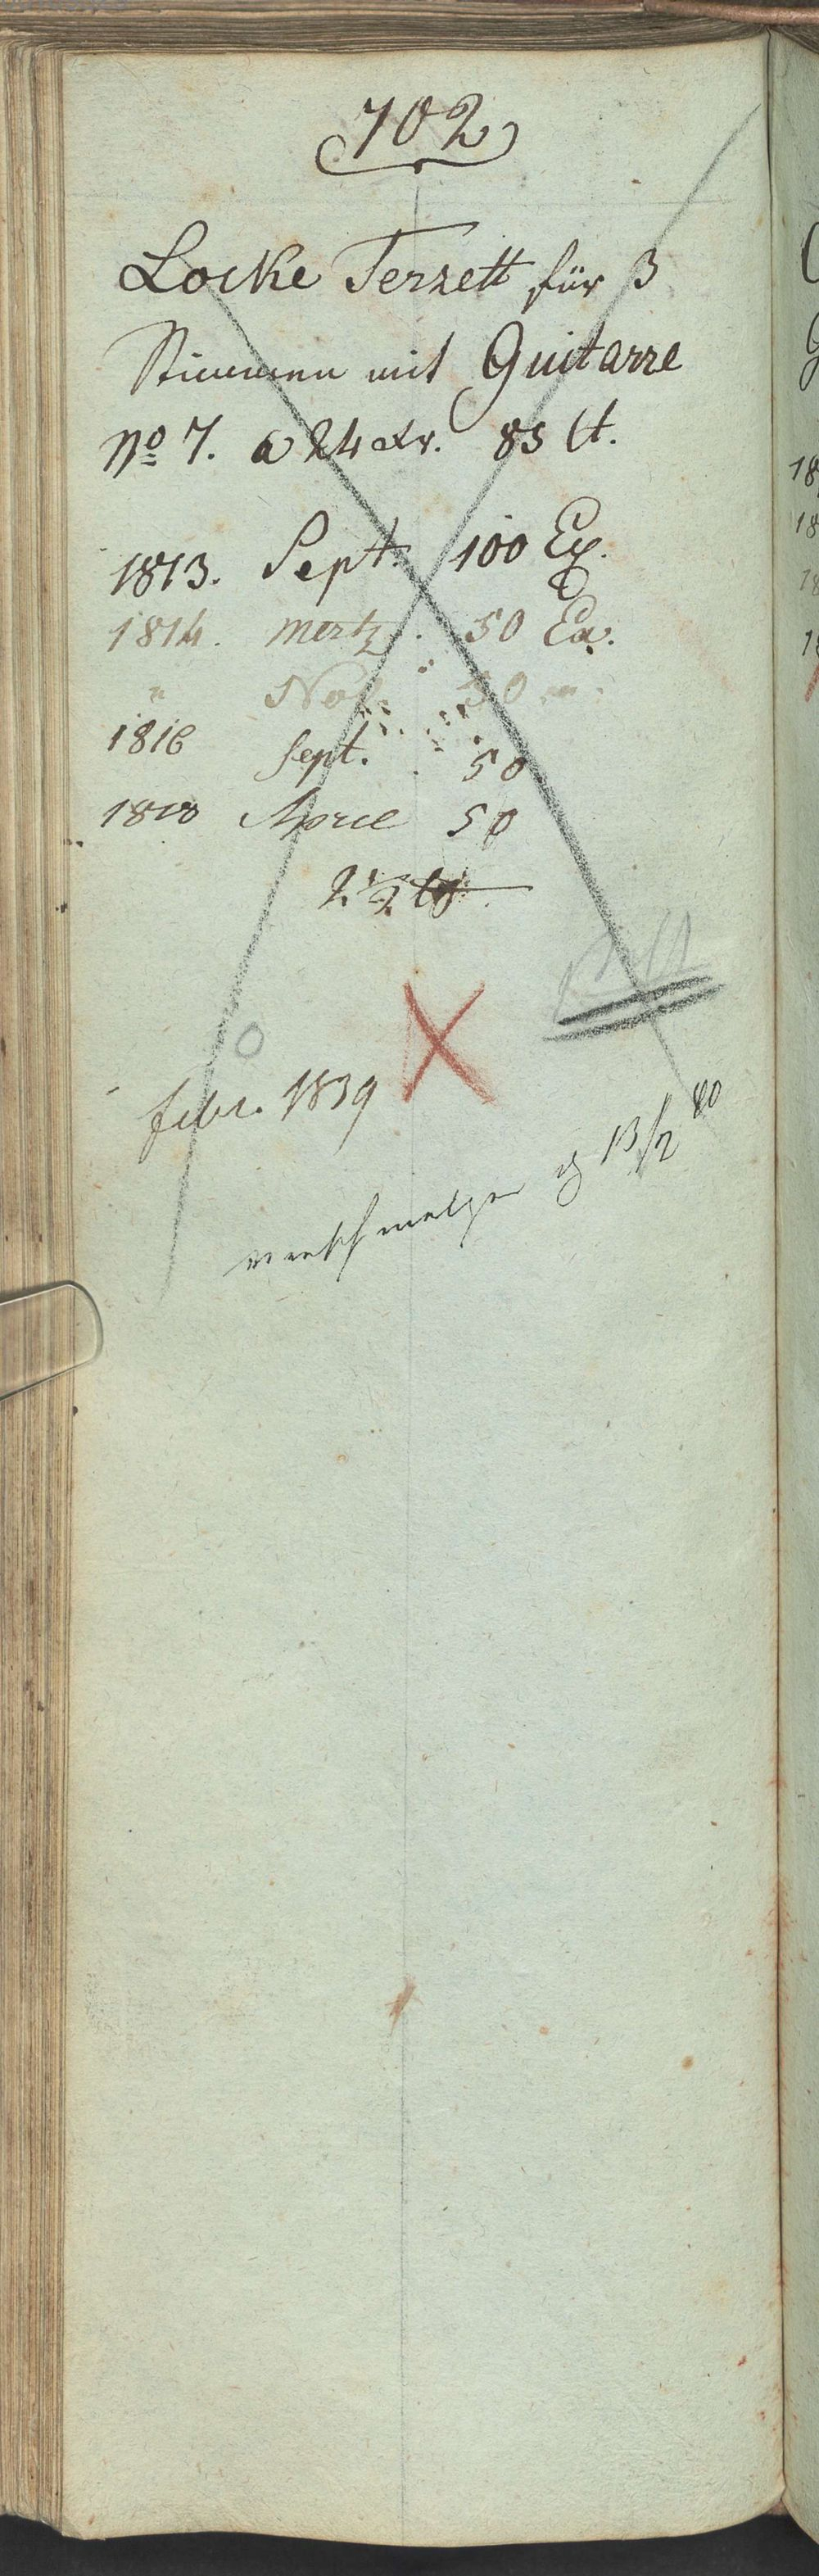 702
Locke Terzett für 3
Stimmen mit Guitarre
No 7. a 24 xr. 8 S lt.
1813. Sept. 100 Ex.
1814. Mertz. 50 Ex.
" Nov. 50 "
1816 Sept. 50
1818 April 50
2 1/2 lb
O X
febr. 1839
verschmolzen 13/2 80